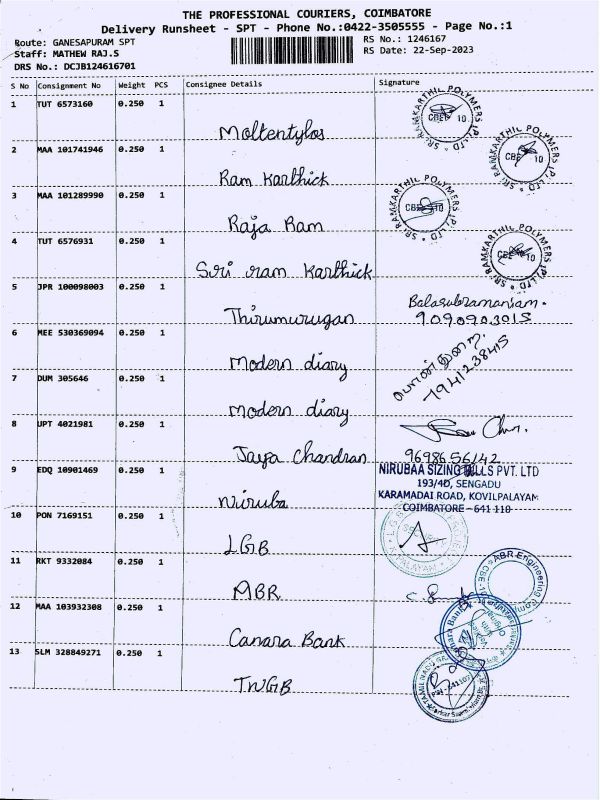 THE PROFESSIONAL COURIERS, COIMBATORE
Delivery Runsheet - SPT - Phone No.:0422-3505555 - Page No.:1
Route: GANESAPURAM SPT
RS No.: 1246167
Staff: MATHEW RAJ.S
RS Date: 22-Sep-2023
DRS No.: DCJB124616701
S No Consignment No Weight PCS Consignee Details Signature
1 TUT 6573160 0.250 1
Moltentylos
SRI RAMKARTHIL POLYMERS (P) LTD
CBE 10
2 MAA 101741946 0.250 1
Ram Karthick
SRI RAMKARTHIL POLYMERS (P) LTD
CBE 10
3 MAA 101289990 0.250 1
Raja Ram
SRI RAMKARTHIL POLYMERS (P) LTD
CBE 10
4 TUT 6576931 0.250 1
Siri ram Karthick
SRI RAMKARTHIL POLYMERS (P) LTD
CBE 10
5 JPR 100098003 0.250 1
Balasubramaniam.
Thirumurugan
9090903015
6 MEE 530369094 0.250 1
Modern diary
பொன்துரை
7941238415
7 DUM 305646 0.250 1
Modern diary
8 UPT 4021981 0.250 1
Jaya Chandran
9698656142
9 EDQ 10901469 0.250 1
NIRUBAA SIZING MILLS PVT. LTD
193/4D, SENGADU
KARAMADAI ROAD, KOVILPALAYAM
Niruba
COIMBATORE - 641 110
10 PON 7169151 0.250 1
LGB
11 RKT 9332084 0.250 1
ABR
ABR Engineering
12 MAA 103932308 0.250 1
Canara Bank
Canara Bank
13 SLM 328849271 0.250 1
TNGB